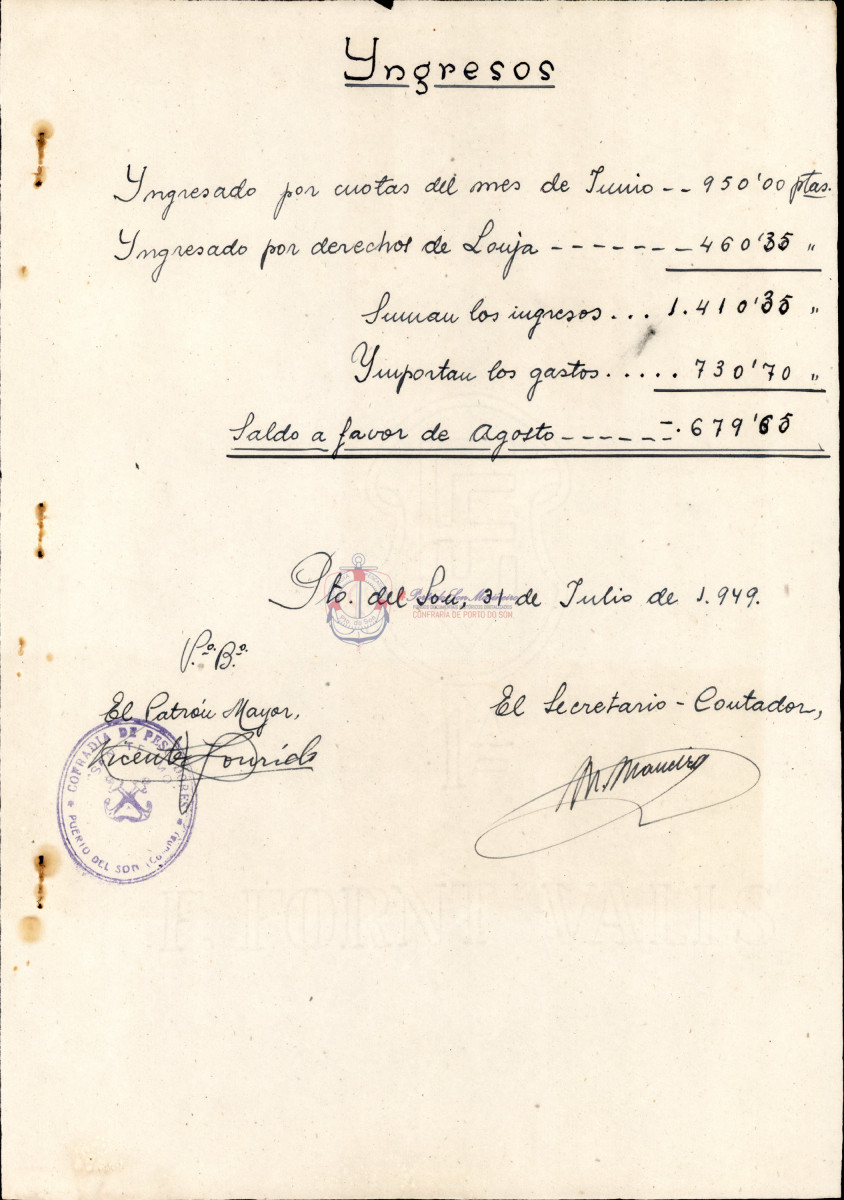 Yngresos
Yngresado por cuotas del mes de Junio -- 950'00 ptas.
Yngresado por derechos de Lonja ------- 460'35 "
Suman los ingresos... 1.410'35 "
Ymportan los gastos..... 730'70 "
Saldo a favor de Agosto ------ 679'65
Pto. del Son, 31 de Julio de 1.949.
CONFRARIA DE PORTO DO SON
Pto. do Son
Vº. Bº.
El Patrón Mayor,
El Secretario-Contador,
Vicente
M. Maneiro
COFRADIA DE PESCADORES
"SAN TELMO"
PUERTO DEL SON (Coruña)